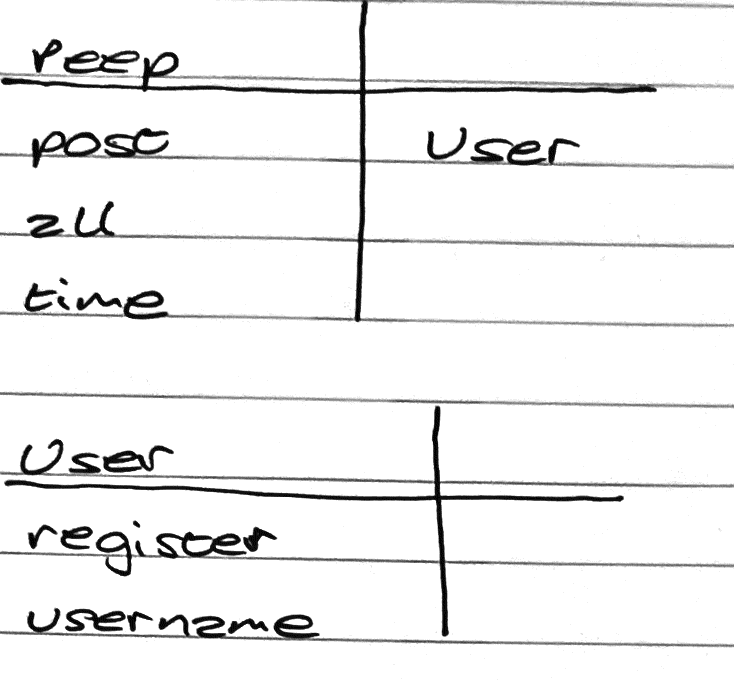 Peep
post User
all
time
User
register
username